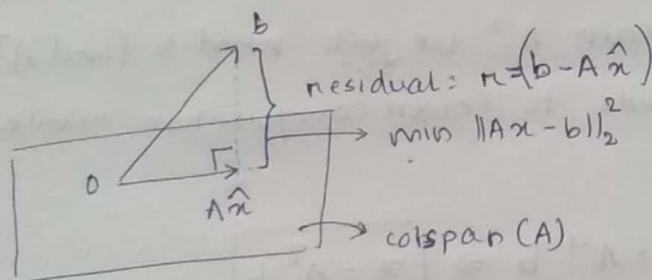 b
residual: r = (b - Ax̂)
→ min ||Ax - b||₂²
0
Ax̂
→ colspan (A)